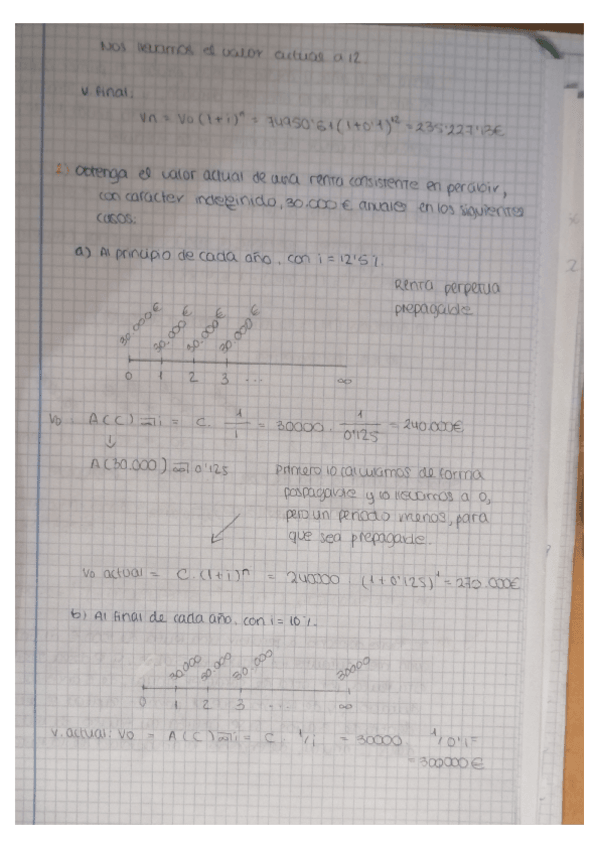 Nos llevamos el valor actual a 12.
V final:
Vn = Vo (1+i)ⁿ = 74950'51 (1+0'1)¹² = 235'227'13€
2) Obtenga el valor actual de una renta consistente en percibir,
con caracter indefinido, 30.000 € anuales en los siguientes
casos:
a) Al principio de cada año, con i = 12'5%
Renta perpetua
prepagable
30.000€ 30.000€ 30.000€ 30.000€
0 1 2 3 ... ∞
Vo: A(C)∞̅|i = C · 1/i = 30000 · 1/0'125 = 240.000€
↓
A(30.000)∞̅|0'125
Primero lo calculamos de forma
pospagable y lo llevamos a 0,
pero un periodo menos, para
que sea prepagable.
Vo actual = C · (1+i)ⁿ = 240000 · (1+0'125)¹ = 270.000€
b) Al final de cada año, con i = 10%.
30.000 30.000 30.000 30000
0 1 2 3 .... ∞
V. actual: Vo = A(C)∞̅|i = C · 1/i = 30000 · 1/0'1 =
= 300000€